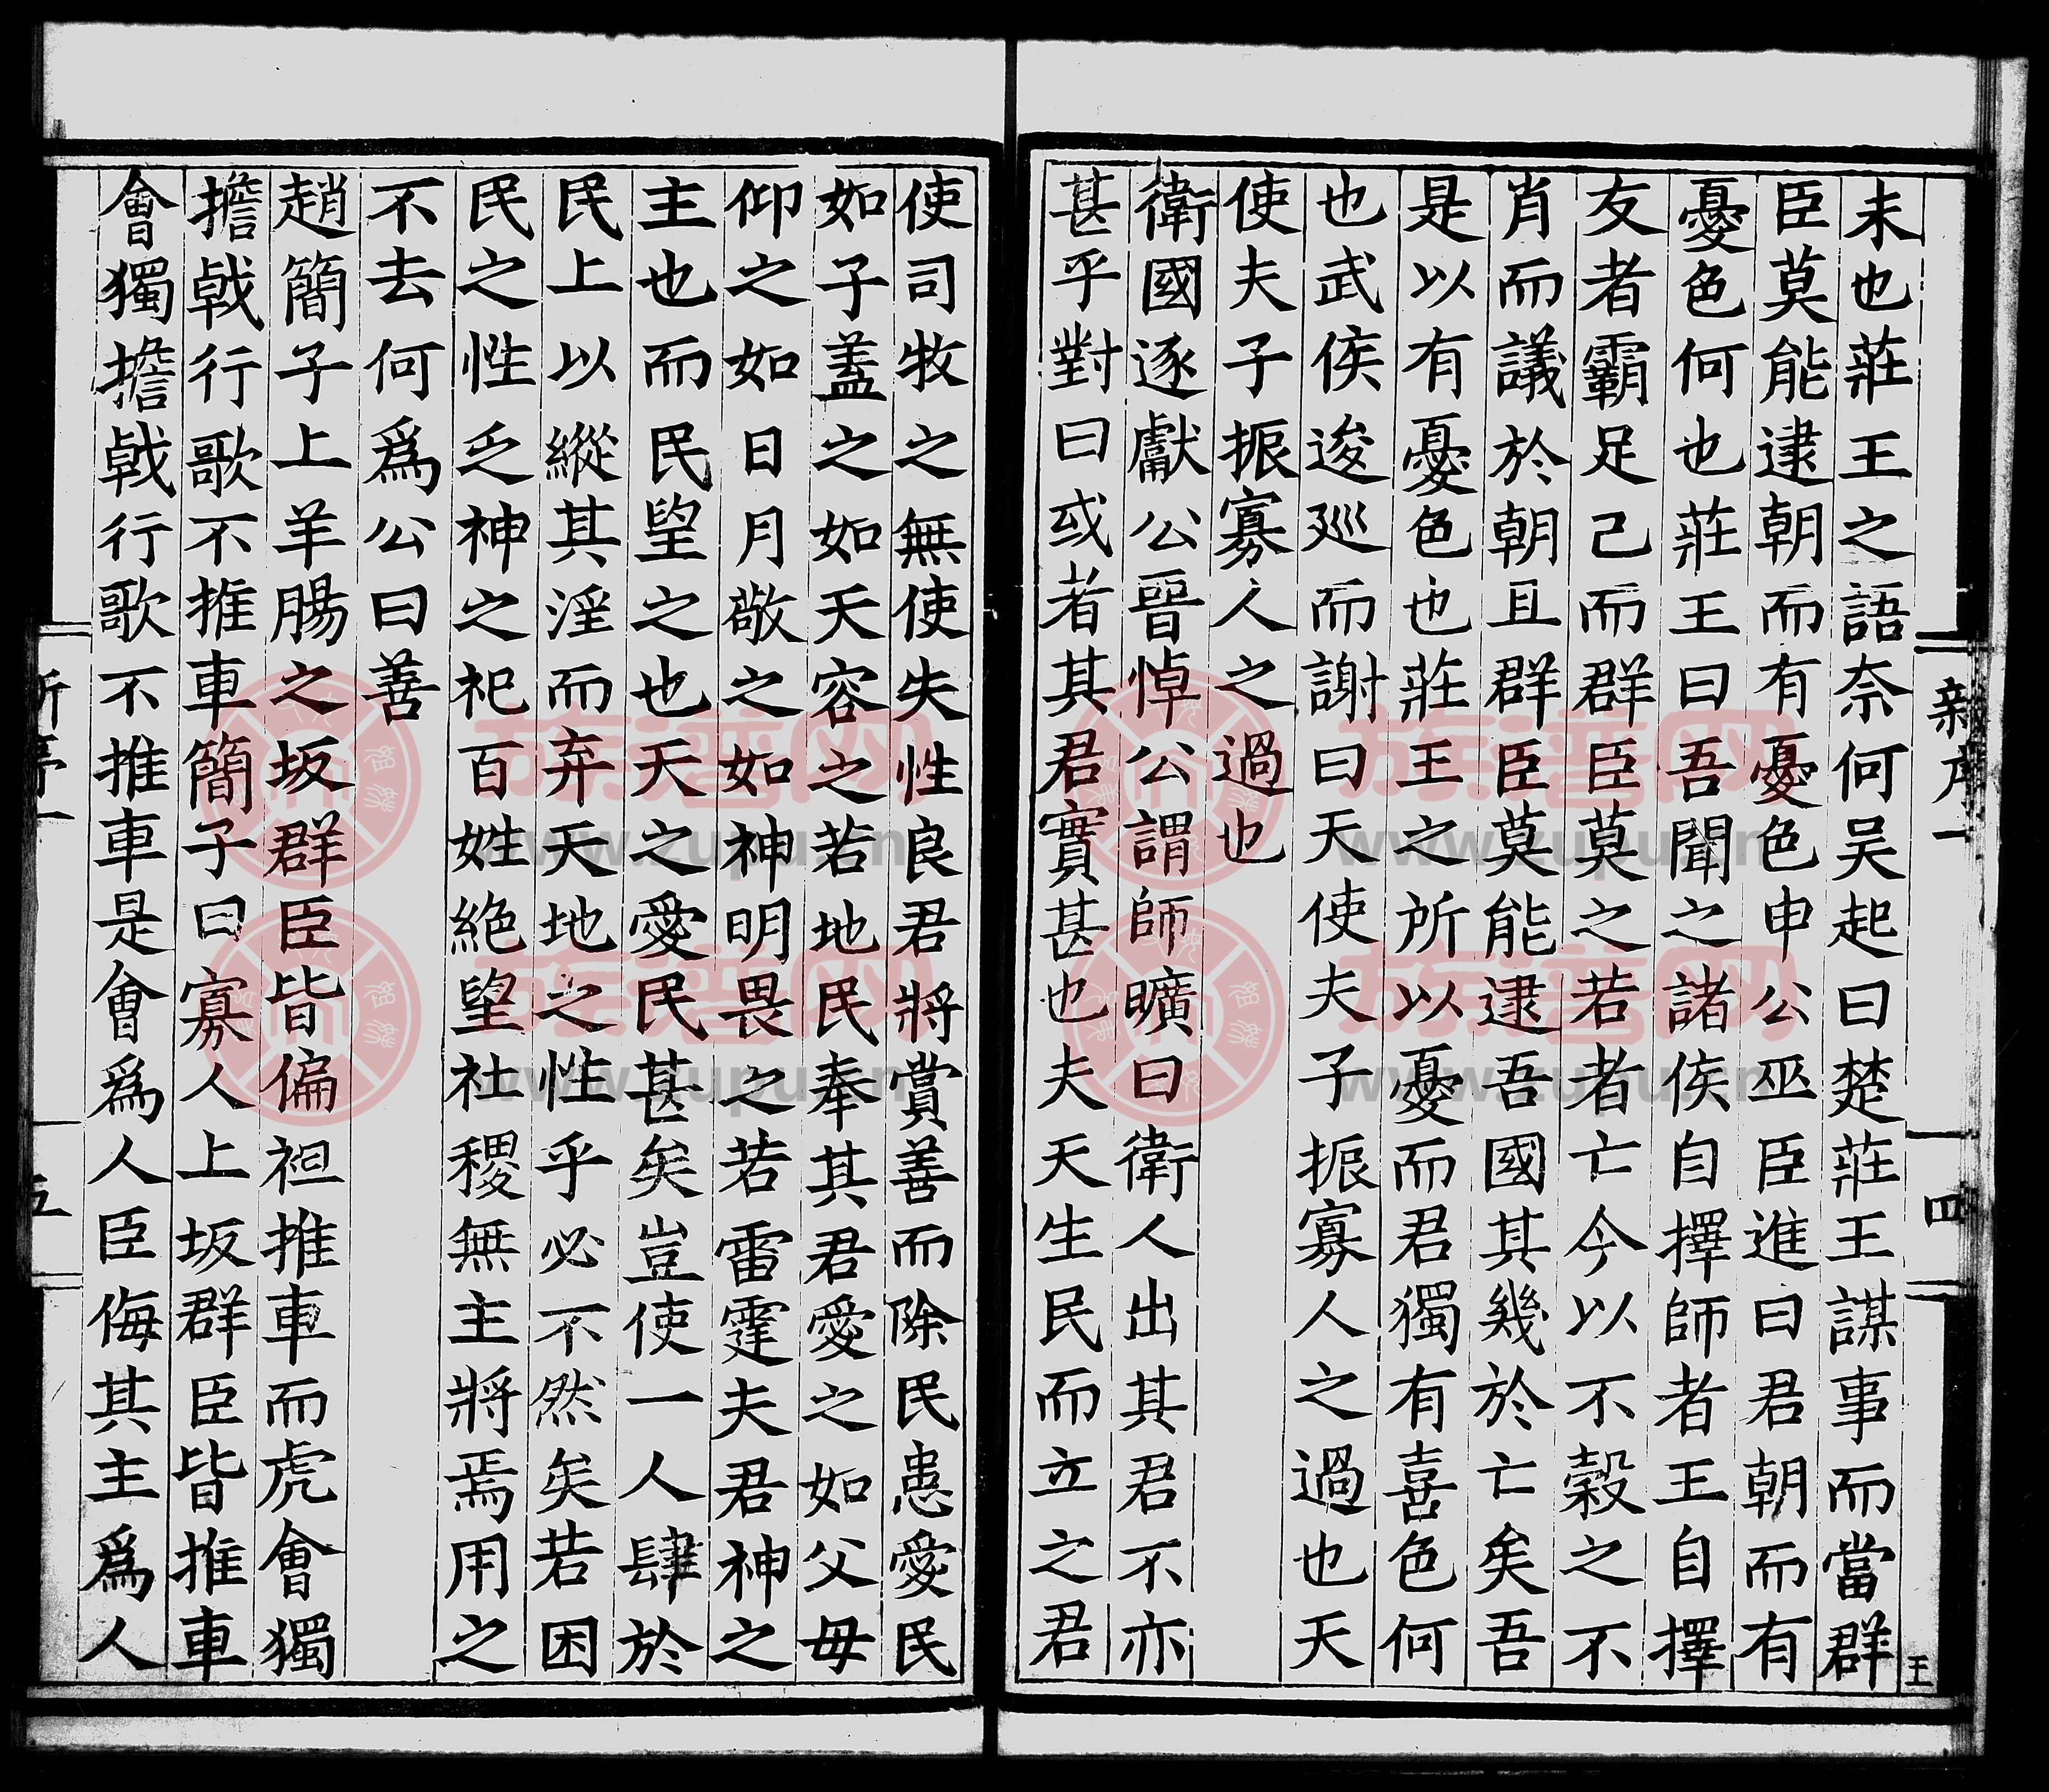 新序一
四
王
未也莊王之語奈何吴起曰楚莊王謀事而當群
臣莫能逮朝而有憂色申公巫臣進曰君朝而有
憂色何也莊王曰吾聞之諸侯自擇師者王自擇
友者霸足己而群臣莫之若者亡今以不穀之不
肖而議於朝且群臣莫能逮吾國其幾於亡矣吾
是以有憂色也莊王之所以憂而君獨有喜色何
也武侯逡巡而謝曰天使夫子振寡人之過也天
使夫子振寡人之過也
衛國逐獻公晉悼公謂師曠曰衛人出其君不亦
甚乎對曰或者其君實甚也夫天生民而立之君
使司牧之無使失性良君將賞善而除民患愛民
如子蓋之如天容之若地民奉其君愛之如父母
仰之如日月敬之如神明畏之若雷霆夫君神之
主也而民望之也天之愛民甚矣豈使一人肆於
民上以縱其淫而弃天地之性乎必不然矣若困
民之性乏神之祀百姓絶望社稷無主將焉用之
不去何爲公曰善
趙簡子上羊腸之坂群臣皆偏袒推車而虎會獨
擔戟行歌不推車簡子曰寡人上坂群臣皆推車
會獨擔戟行歌不推車是會爲人臣侮其主爲人
新序一
五
族譜网
www.zupu.cn
族譜网
www.zupu.cn
族譜网
www.zupu.cn
族譜网
www.zupu.cn